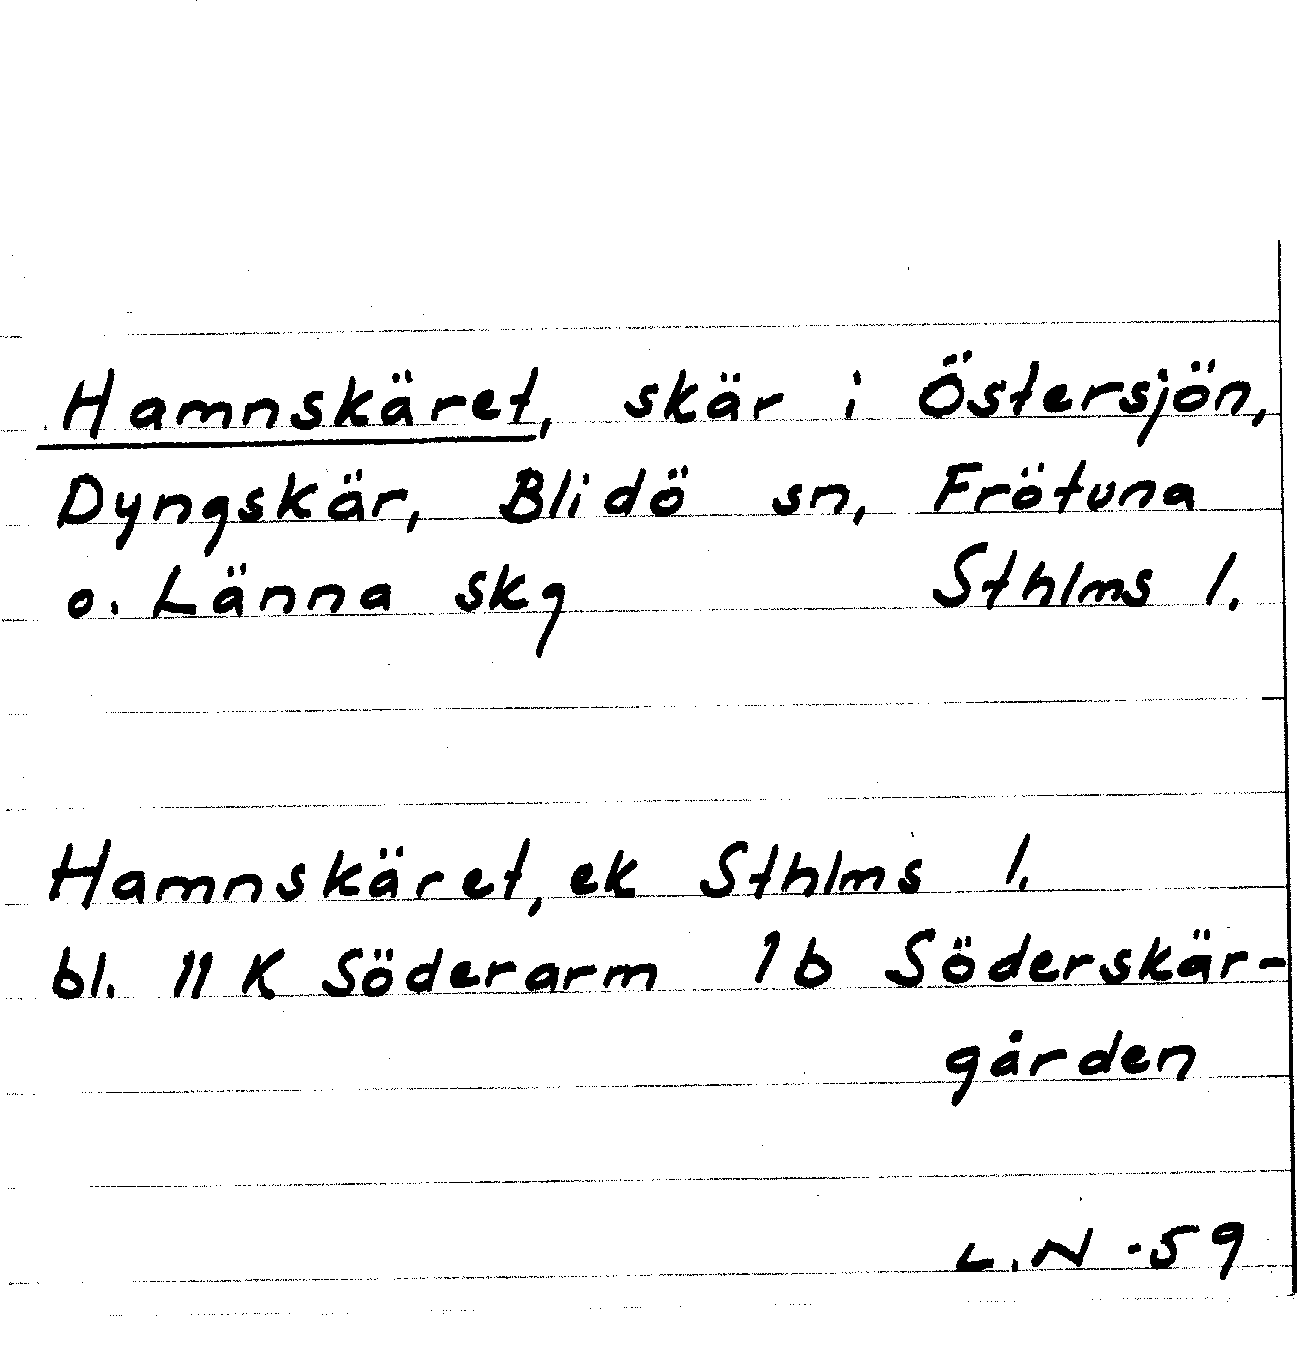 Hamnskäret, skär i Östersjön,
Dyngskär, Blidö sn, Frötuna
o. Länna skg Sthlms l.
Hamnskäret, ek Sthlms l.
bl. 11 K Söderarm 1b Söderskär-
gården
L.N -59